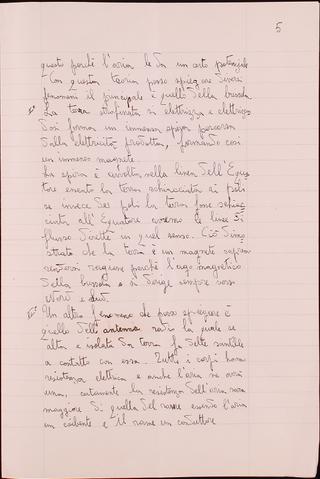 5
questo perché l'aria le dà un certo potenziale
Con questa teoria posso spiegare diversi
fenomeni il principale è quello della bussola
La terra strofinata si elettrizza e elettrizzan
dosi forma un immensa spira percorsa
dalla elettricità prodotta, formando così
un immenso magnete.
La spira è avvolta nella linea dell'Equa
tore essendo la terra schiacciata ai poli
se invece dei poli la terra fosse schiac
ciata all'Equatore avremo le linee di
flusso dirette in quel senso. Ciò dimo
strato che la terra è un magnete sapremo
renderci ragione perché l'ago magnetico
della bussola si dirige sempre verso
Nord e Sud.
Un altro fenomeno che posso spiegare è
quello dell'antenna radio la quale se
alta e isolata da terra fa delle scintille
a contatto con essa. Tutti i corpi hanno
resistenza elettrica e anche l'aria ne avrà
una, certamente la resistenza dell'aria sarà
maggiore di quella del rame essendo l'aria
un coibente e il rame un conduttore